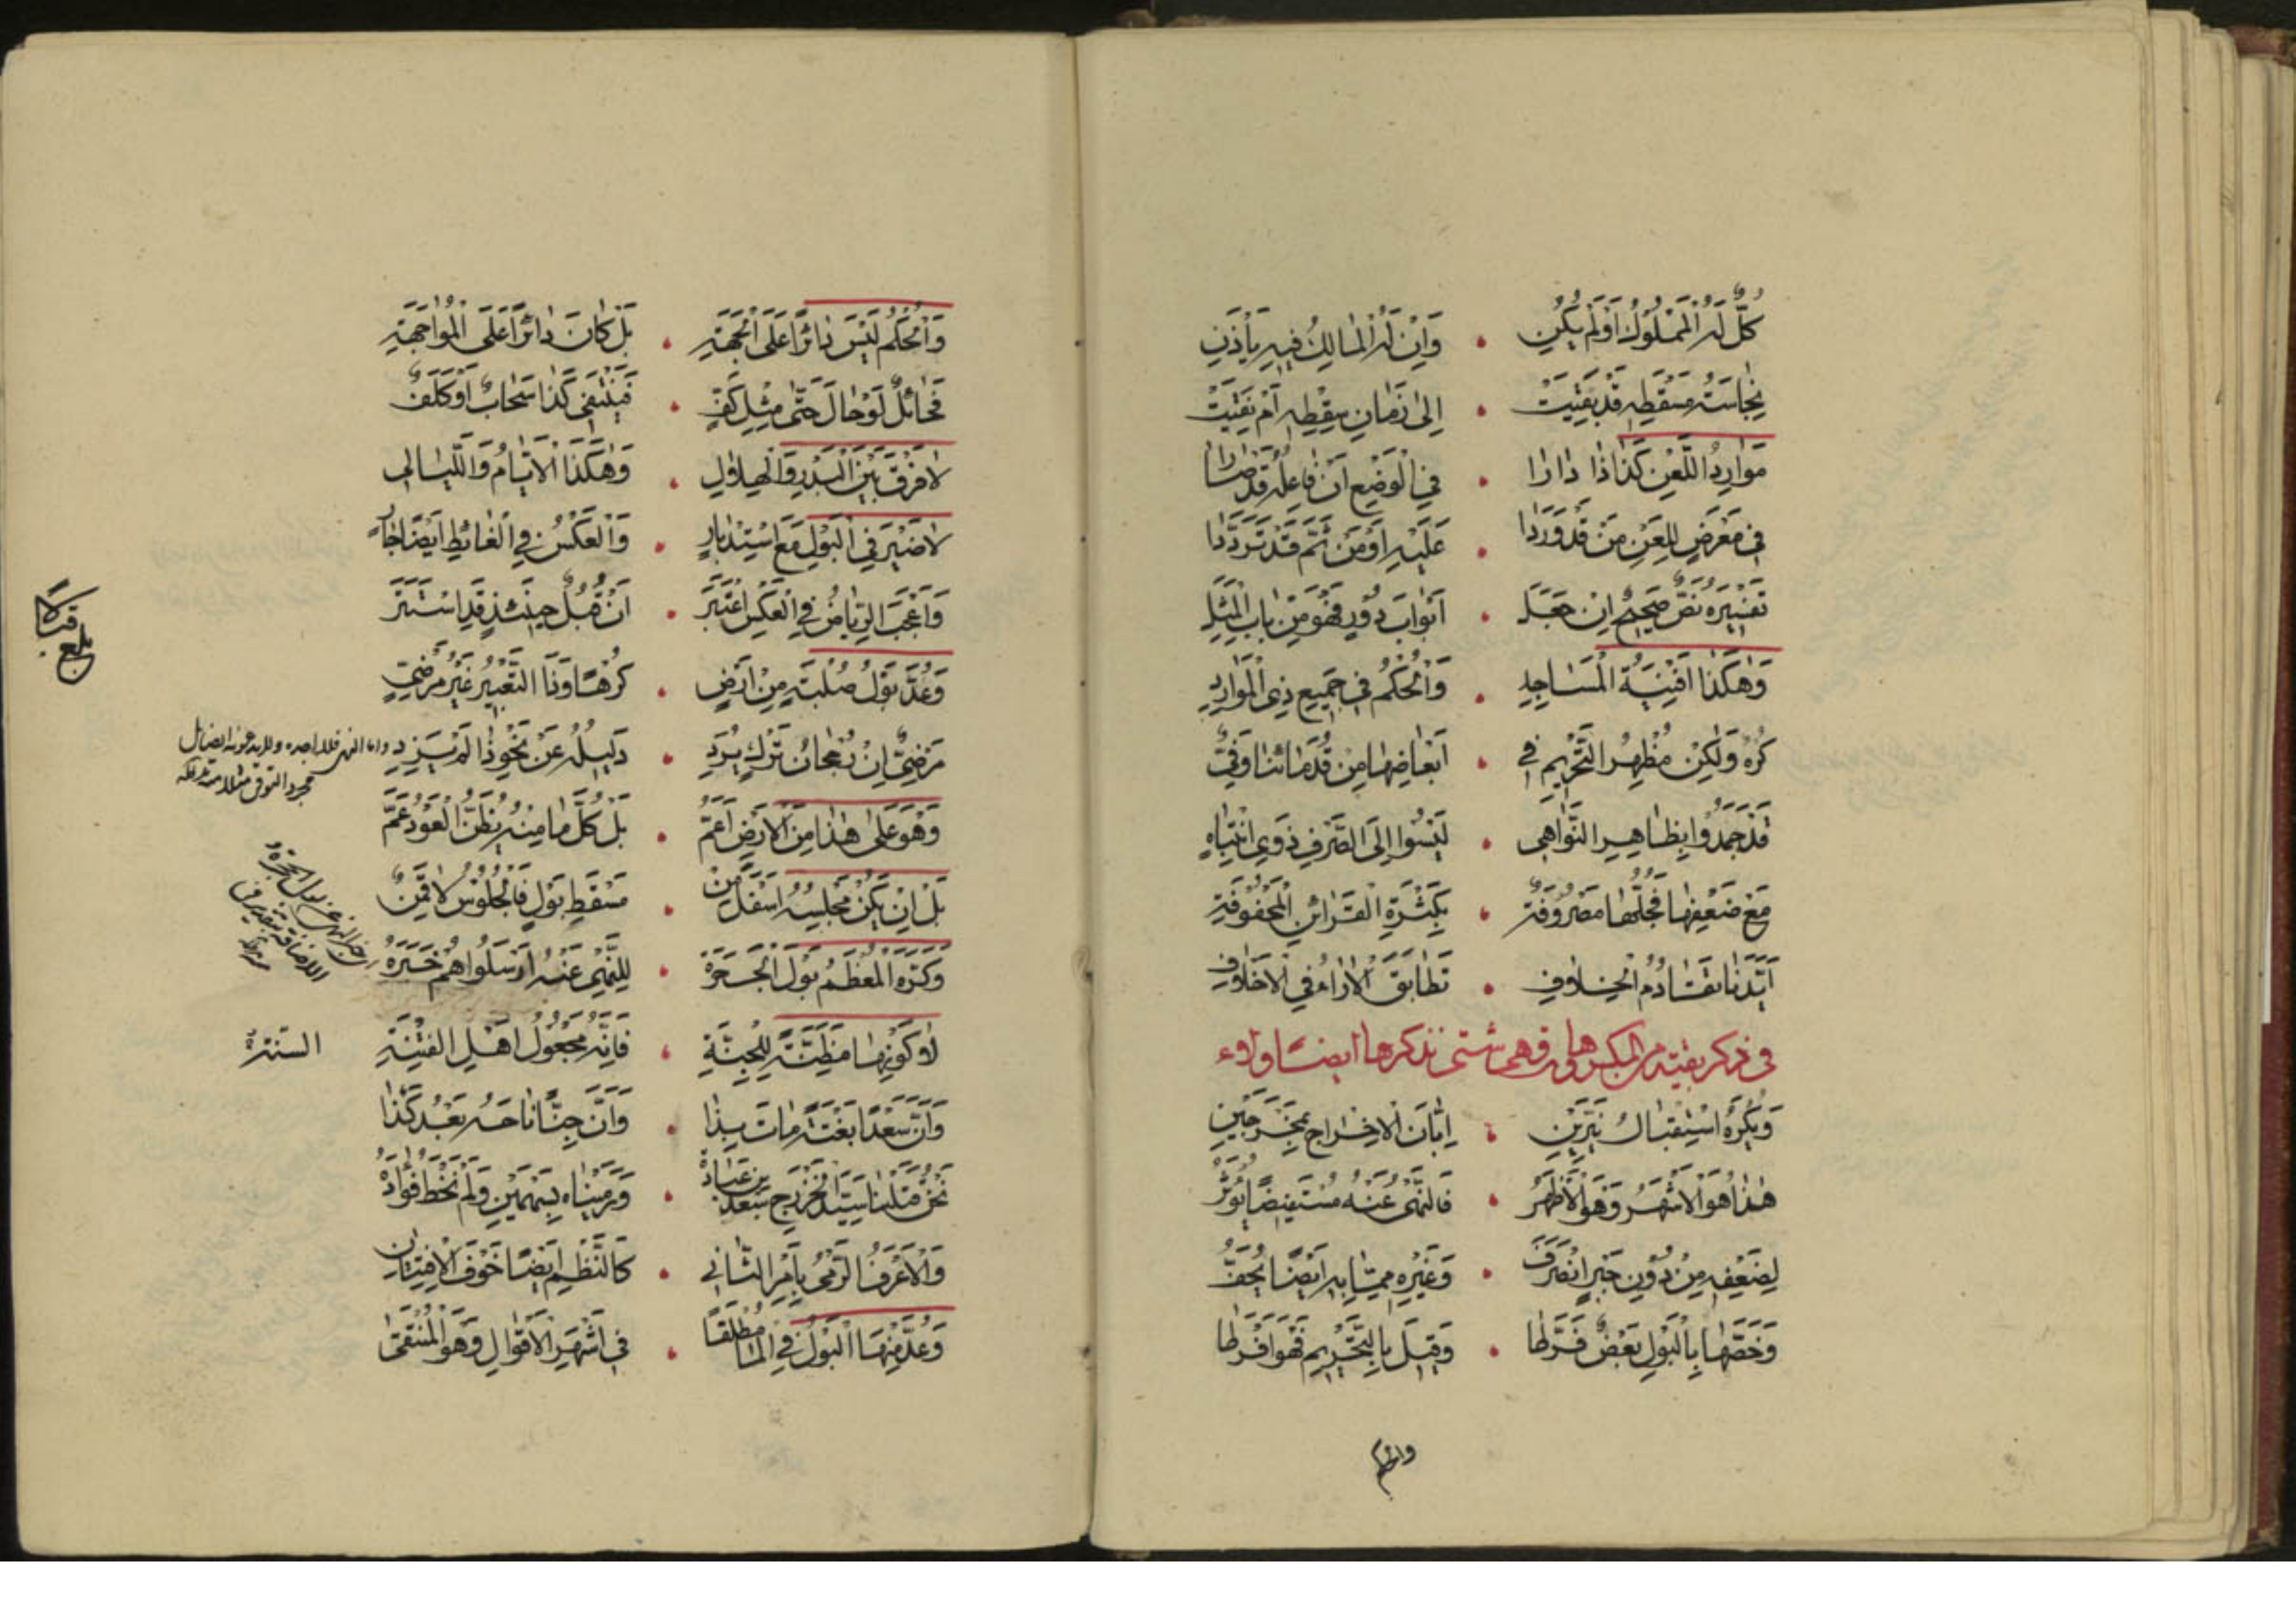 كُلٌّ لَهُ الْمَمْلُوكُ اَوْ لَمْ يَكُنِ . وَاِنْ لَهُ الْمَالِكُ فِيهِ يَأْذَنِ
نِجَاسَتُهُ مَسْقَطِهِ قَدْ بَقِيَتْ . اِلىٰ زَمَانِ سِقْطِهِ اَمْ نَقِيَتْ
مَوَارِدُ اللَّعْنِ كَذَا ذَا دَارَا . فِي الْوَضْعِ اَنْ فَاعِلُهُ قَدْ ضَارَا
فِي مَعْرَضٍ لِلَعْنِ مَنْ قَدْ وَرَدَا . عَلَيْهِ اَوْ مَنْ ثَمَّ قَدْ تَرَدَّدَا
تَفْسِيرُهُ نَصٌّ صَحِيحٌ اِنْ جَعَلَه . اَبْوَابَ دُورٍ فَهْوَ مِنْ بَابِ الْمَثَلِه
وَهٰكَذَا اَفْنِيَةُ الْمَسَاجِدِ . وَالْحُكْمُ فِي جَمِيعِ ذِي الْمَوَارِدِ
كُرْهٌ وَلٰكِنْ مُظْهِرُ التَّحْرِيمِ فِي . اَبْعَاضِهَا مِنْ قُدَمَائِنَا وَفِيّ
قَدْ جَمَدُوا بِظَاهِرِ النَّوَاهِي . لَيْسُوا اِلَى الصَّرْفِ ذَوِي انْتِبَاهِ
مَعَ ضَعْفِهَا فَجُلُّهَا مَصْرُوفَة . بِكَثْرَةِ الْقَرَائِنِ الْمَحْفُوفَةِ
اَيَّدَنَا تَقَادُمُ الْخِلَافِ . تَطَابَقَ الْاٰرَاءُ فِي الْاَخْلَافِ
في ذكر بقية من المكروهات وهي شتى نذكرها ايضا ولاء
وَيُكْرَهُ اسْتِقْبَالُ نَيِّرَيْنِ . اِبَّانَ الْاِخْرَاجِ بِمَخْرَجَيْنِ
هٰذَا هُوَ الْاَشْهَرُ وَهْوَ الْاَظْهَرُ . فَالنَّهْيُ عَنْهُ مُسْتَفِيضًا يُؤْثَرُ
لِضَعْفِهِ مِنْ دُونِ جَبْرٍ انْصَرَفَ . وَغَيْرِهِ مِمَّا بِهِ اَيْضًا يُحَفّ
وَخَصَّهَا بِالْبَوْلِ بَعْضٌ فَرَّطَا . وَقِيلَ بِالتَّحْرِيمِ فَهْوَ اَفْرَطَا
والحكم
وَالْحُكْمُ لَيْسَ دَائِرًا عَلَى الْجِهَةِ . بَلْ كَانَ دَائِرًا عَلَى الْمُوَاجَهَةِ
فَحَائِلٌ لَوْ حَالَ حَتّٰى مِثْلِ كَفٍّ . فَيَنْتَفِي كَذَا سَحَابٌ اَوْ كَلَفٌ
لَا فَرْقَ بَيْنَ الْبَدْرِ وَالْهِلَالِ . وَهٰكَذَا الْاَيَّامُ وَاللَّيَالِي
لَا ضَيْرَ فِي الْبَوْلِ مَعَ اسْتِدْبَارٍ . وَالْعَكْسُ فِي الْغَائِطِ اَيْضًا جَارٍ
وَاَعْجَبَ الرِّيَاضُ فِي الْعَكْسِ اعْتَبَرَ . اَنْ قُبُلٌ حِينَئِذٍ قَدِ اسْتَتَرَ
وَعُدَّ بَوْلُ صُلْبَةٍ مِنْ اَرْضٍ . كُرْهًا وَذَا التَّعْبِيرُ غَيْرُ مَرْضِيٍّ
مَرْضِيٌّ اِنْ رُجْحَانَ تَرْكٍ يُرَدِ . دَلِيلُهُ عَنْ نَحْوِ ذَا لَمْ يَزِدِ
وَهْوَ عَلىٰ هٰذَا مِنَ الْاَرْضِ اَعَمّ . بَلْ كُلَّ مَا مِنْهُ يُظَنُّ الْعَوْدُ عَمّ
بَلْ اِنْ يَكُنْ مَجْلِسُهُ اَسْفَلَ مِنْ . مَسْقَطِ بَوْلٍ فَالْجُلُوسُ لَا قَمِنٌ
وَكَرِهَ الْمُعْظَمُ بَوْلَ الْجَحَرَةْ . لِلنَّهْيِ عَنْهُ اَرْسَلُوا هُمْ خَبَرَهُ
لَا كَوْنِهَا مَظِنَّةً لِلْجِنَّةِ . فَاِنَّهُ مَجْعُولُ اَهْلِ الْفِتْنَةِ
السنة
وَاَنَّ سَعْدًا بَغْتَةً مَاتَ بِذَا . وَاَنَّ جِنًّا نَاحَهُ بَعْدُ كَذَا
نَحْنُ قَتَلْنَا سَيِّدَ الْخَزْرَجِ سَعْدَ بْنَ عُبَادَةْ . وَرَمَيْنَاهُ بِسَهْمَيْنِ وَلَمْ نُخْطِ فُؤَادَهْ
وَالْاَعْرَفُ الرَّمْيُ بِاَمْرِ الثَّانِي . كَالنَّظْمِ اَيْضًا خَوْفَ الْاِفْتِتَانِ
وَعُدَّ مِنْهَا الْبَوْلُ فِي الْمَا مُطْلَقًا . فِي اَشْهَرِ الْاَقْوَالِ وَهْوَ الْمُنْتَقىٰ
بلغ قبالا